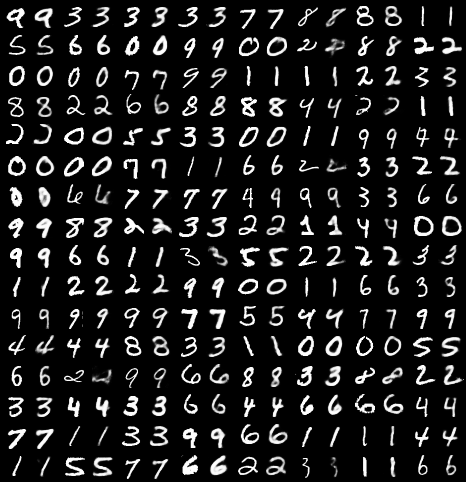 9 9 3 3 3 3 3 3 7 7 8 8 8 8 1 1
5 5 6 6 0 0 9 9 0 0 2 2 8 8 2 2
0 0 0 0 7 7 9 9 1 1 1 1 2 2 3 3
8 8 2 2 6 6 8 8 8 8 4 4 2 2 1 1
2 2 0 0 5 5 3 3 0 0 1 1 9 9 4 4
0 0 0 0 7 7 1 1 6 6 2 2 3 3 2 2
0 0 6 6 7 7 7 7 4 4 9 9 3 3 6 6
9 9 8 8 2 2 3 3 2 2 1 1 4 4 0 0
9 9 6 6 1 1 3 3 5 5 2 2 2 2 3 3
1 1 2 2 2 2 9 9 0 0 1 1 6 6 3 3
9 9 9 9 9 9 7 7 5 5 4 4 7 7 9 9
4 4 4 4 8 8 3 3 1 1 0 0 0 0 5 5
6 6 2 2 9 9 6 6 8 8 3 3 8 8 2 2
3 3 4 4 3 3 6 6 4 4 6 6 6 6 4 4
7 7 1 1 3 3 9 9 6 6 1 1 1 1 4 4
1 1 5 5 7 7 6 6 2 2 3 3 1 1 6 6